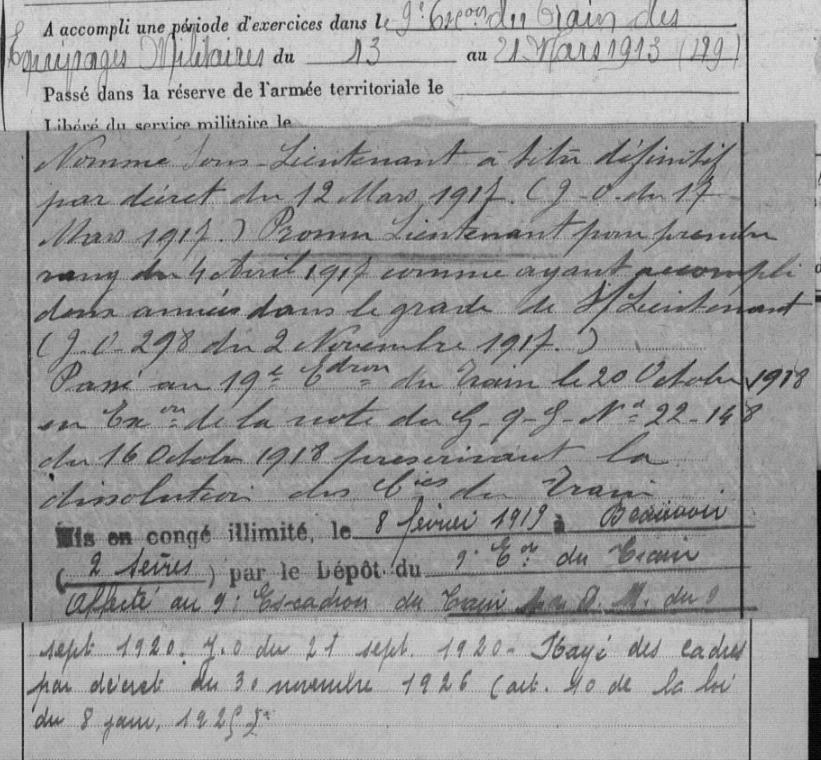 A accompli une période d'exercices dans le 9e Escon du Train des
Equipages Militaires du 13 au 21 Mars 1913 (189)
Passé dans la réserve de l'armée territoriale le
Libéré du service militaire le
Nommé Sous-Lieutenant à titre définitif
par décret du 12 Mars 1917. (J.O. du 17
Mars 1917.) Promu Lieutenant pour prendre
rang du 4 Avril 1917 comme ayant accompli
deux années dans le grade de S/Lieutenant
(J.O. 298 du 2 Novembre 1917.)
Passé au 19e Edron du Train le 20 Octobre 1918
en Exon de la note du G.Q.G. No 22-148
du 16 Octobre 1918 prescrivant la
dissolution des Cies du Train
Mis en congé illimité, le 8 février 1919 à Beauvoir
(2 Sèvres) par le Dépôt du 9e Eon du Train
Affecté au 9e Escadron du Train D.M. du 9
sept 1920. J.O du 21 sept. 1920. Rayé des cadres
par décret du 30 novembre 1926 (art. 40 de la loi
du 8 janv. 1925).